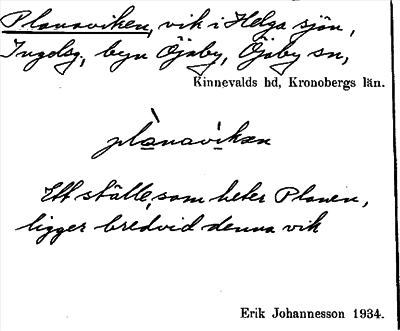 Planaviken, vik i Helga sjön,
Ingelsg, byn Öjaby, Öjaby sn,
Kinnevalds hd, Kronobergs län.
plànavìkən
Ett ställe, som heter Planen,
ligger bredvid denna vik
Erik Johannesson 1934.